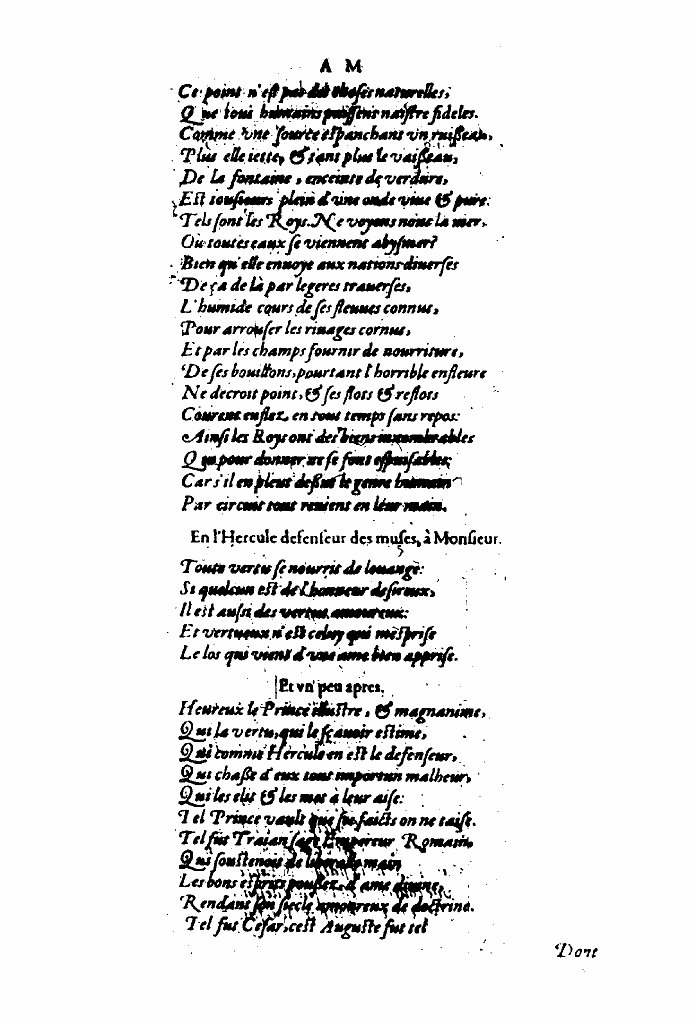 A M
Ce point n'est pas des choses naturelles,
Que tous humains puissent naistre fideles.
Comme vne source espanchant vn ruisseau,
Plus elle iette, & tant plus le vaisseau,
De la fontaine, enceinte de verdure,
Est tousiours plein d'vne onde viue & pure:
Tels sont les Roys. Ne voyons nous la mer,
Où toutes eaux se viennent abysmer?
Bien qu'elle enuoye aux nations diuerses
De ça de là par legeres trauerses,
L'humide cours de ses fleuues connus,
Pour arrouser les riuages cornus,
Et par les champs fournir de nourriture,
De ses bouillons, pourtant l'horrible enfleure
Ne decroit point, & ses flots & reflots
Courent enflez, en tout temps sans repos:
Ainsi les Roys ont des biens innumbrables
Qui pour donner ne se font espuisables;
Car s'il en pleut dessus le genre humain
Par circuit tout reuient en leur main.
En l'Hercule defenseur des muses, à Monsieur.
Toute vertu se nourrit de louange:
Si quelcun est de l'honneur desireux,
Il est aussi des vertus amoureux:
Et vertueux n'est celuy qui mesprise
Le los qui vient d'vne ame bien apprise.
Et vn peu apres.
Heureux le Prince illustre, & magnanime,
Qui la vertu, qui le sçauoir estime,
Qui comme Hercule en est le defenseur,
Qui chasse d'eux tout importun malheur,
Qui les elit & les met à leur aise:
Tel Prince vault que ses faicts on ne taise.
Tel fut Traian sage Empereur Romain,
Qui soustenoit de liberale main
Les bons esprits poussez d'ame diuine,
Rendant son siecle amoureux de doctrine.
Tel fut Cesar, cest Auguste fut tel
Dont